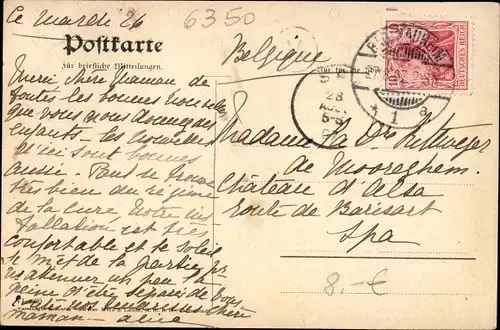 Ce mardi 26
6350
Postkarte
Für briefliche Mitteilungen.
Belgique
Nur für die
DEUTSCHES REICH
28
5-6
1
Merci chère Maman de
toutes les bonnes nouvelles
que vous nous donnez des
enfants. Les nouvelles
d'ici sont bonnes
aussi. Paul se trouve
très bien du régime
de la cure. Notre in-
stallation est très
confortable et le soleil
se met de la partie pr
un peu la
peine d'être séparés de vous
chère
maman -
Madame la Dr
de Mooreghem
Château d'Alsa
Route de Barisart
Spa
8.-€